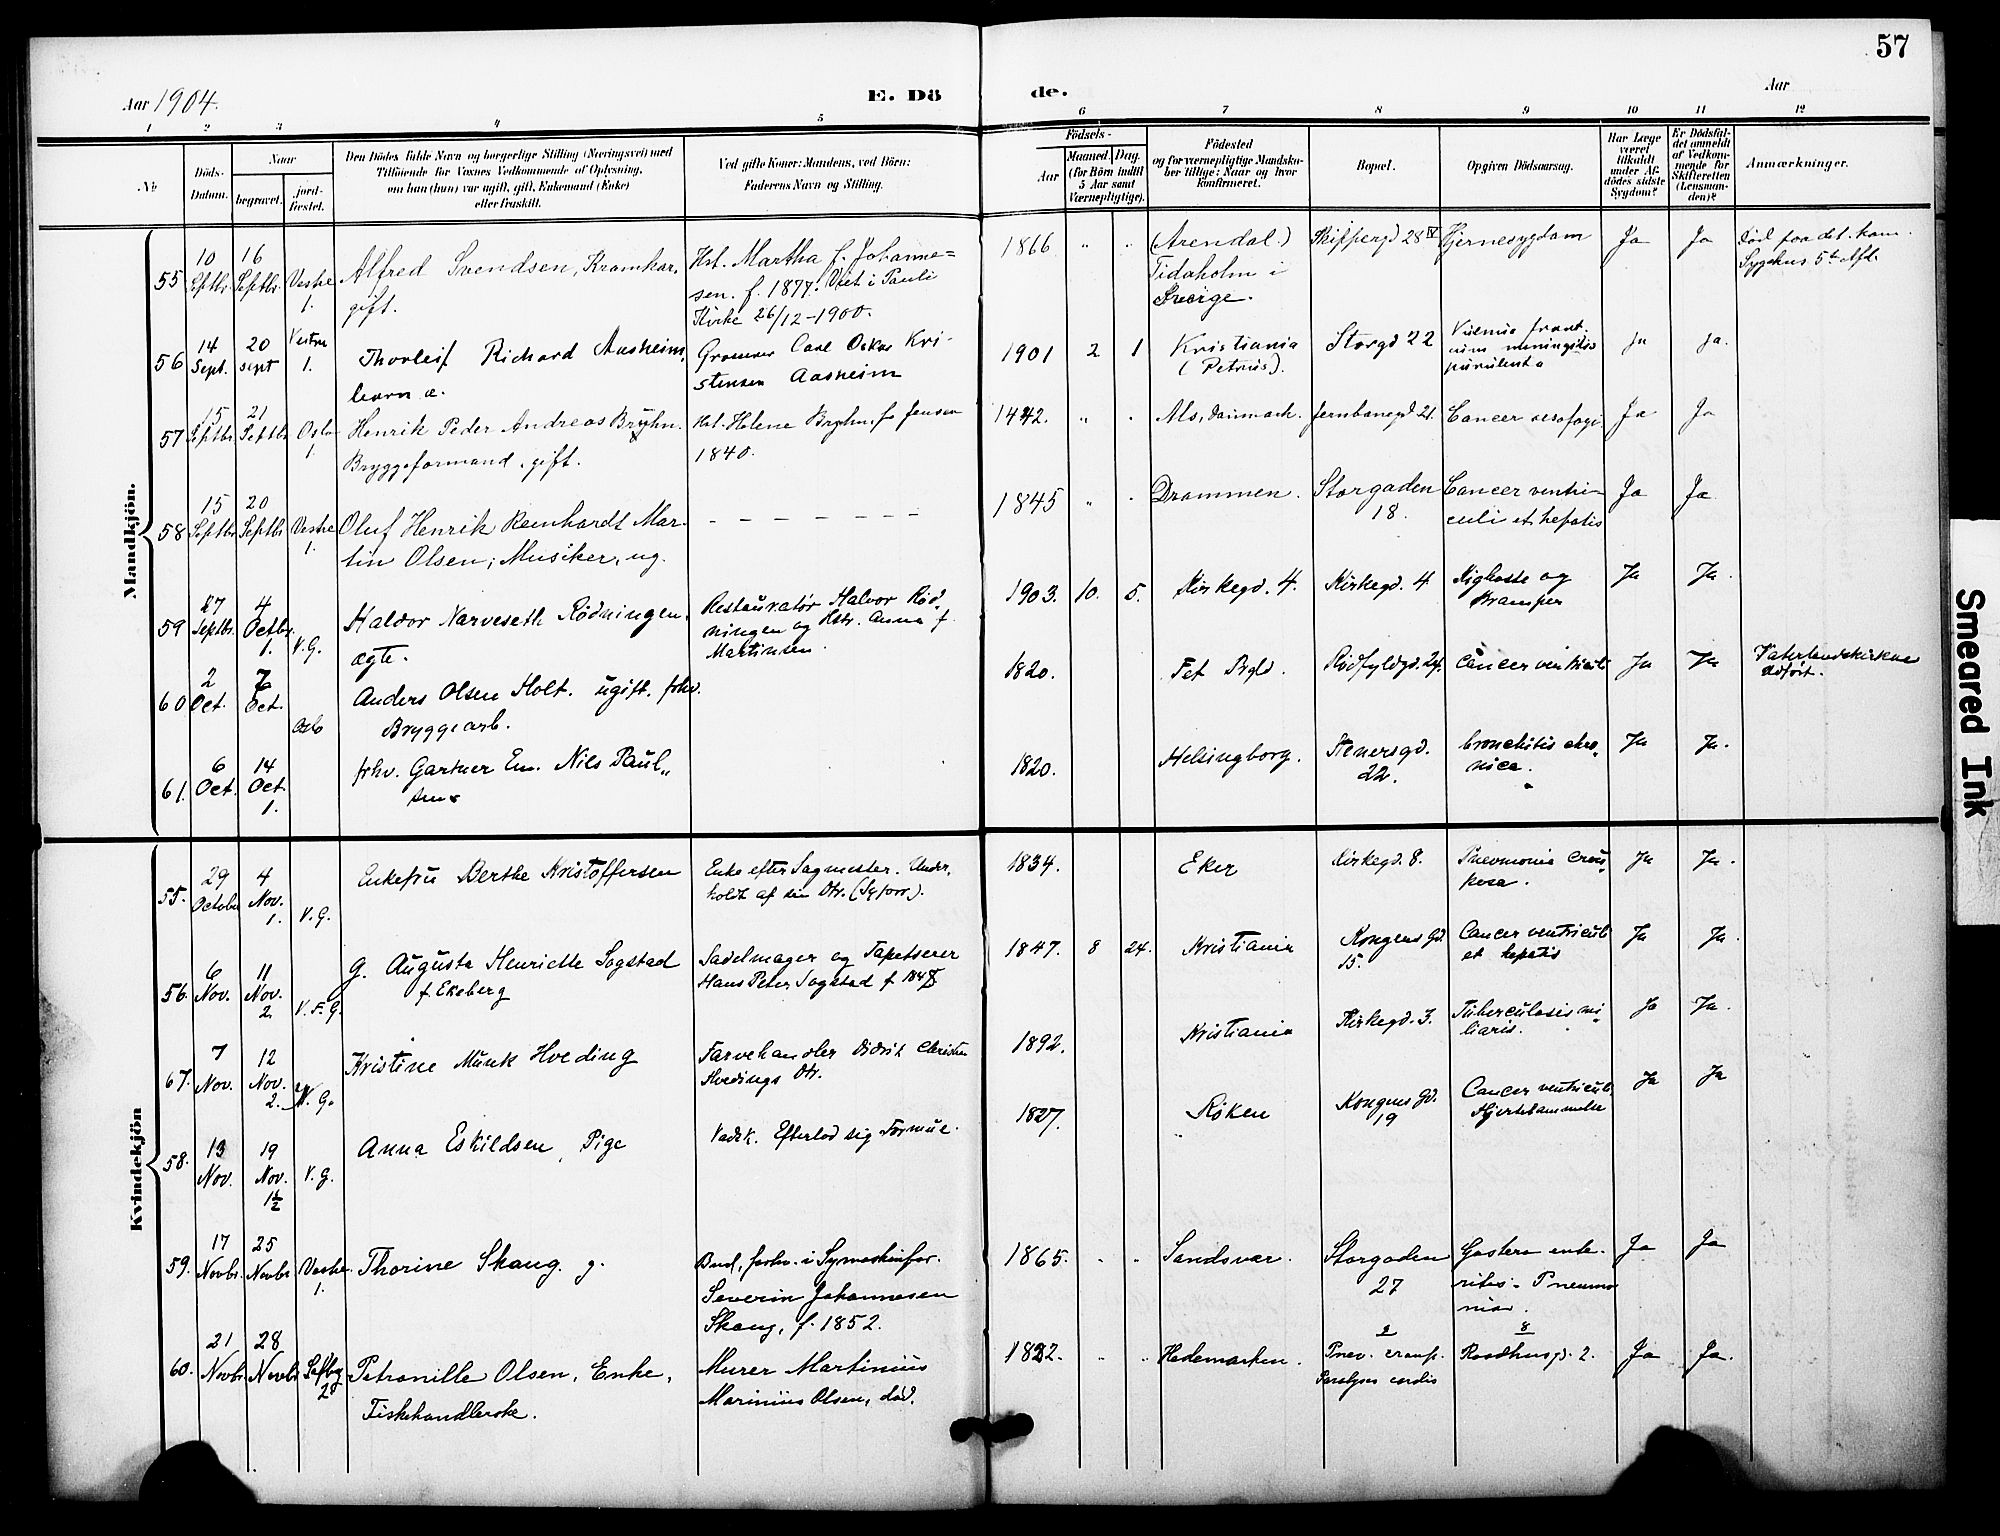 57
Aar 1904.
E. Dö
de.
Aar
1 2 3 4 5 6 7 8 9 10 11 12
No.
Döds-
Datum.
Naar
begravet.
jord-
fæstet.
Den Dödes fulde Navn og borgerlige Stilling (Næringsvei) med
Tilföiende for Voxnes Vedkommende af Oplysning,
om han (hun) var ugift, gift, Enkemand (Enke)
eller fraskilt.
Ved gifte Koner: Mandens, ved Börn:
Faderens Navn og Stilling.
Födsels-
Aar
Maaned. Dag.
(for Börn indtil
5 Aar samt
Værnepligtige).
Födested
og for værnepligtige Mandskaber
tillige: Naar og hvor
konfirmeret.
Bopæl.
Opgiven Dödsaarsag.
Har Læge
været
tilkaldt
under Af-
dödes sidste
Sygdom?
Er Dödsfal-
det anmeldt
af Vedkom-
mende for
Skifteretten
(Lensman-
den)?
Anmærkninger.
Mandkjön.
55 10 Septbr. 16 Septbr. Vestre 1. Alfred Svendsen, Kramkar, Hst. Martha f. Johanne- 1866 " " (Arendal.) Skippergd 28 IV Hjernesygdom Ja Ja Död paa det. kom.
gift. sen. f. 1877. Viet i Pauli Tidaholm i Sygehus 5te Afd.
Kirke 26/12-1900. Sverige.
56 14 Sept. 20 sept Vestre 1. Thorleif Richard Aasheim, Carl Oskar Kri- 1901 2 1 Kristiania Storgd 22 Ja ja.
barn æ. stensen Aasheim (Petrus). meningitis
purulenta
57 15 Septbr. 21 Septbr Oslo 1. Henrik Peder Andreas Bryhn. Hst. Helene Bryhn, f. Jensen 1842. " " Als, Danmark. Jernbanegd 21. Cancer oesofagi Ja Ja
Bryggeformand, gift. 1840.
58 15 Septbr 20 Septbr Vestre 1. Oluf Henrik Reinhardt Mar- - - - - - - - 1845 " " Drammen. Storgaden Cancer ventri- Ja Ja
tin Olsen, Musiker, ug. 18. culi et hepatis
59 27 Septbr. 4 Octbr. 1. V.G. Haldor Narveseth Rödningen, Restauratør Halvor Röd- 1903. 10. 5. Kirkegd. 4. Kirkegd. 4 Kighoste og Ja Ja.
ægte. ningen og Hstr. Anna f. Kramper
Martinsen.
60 2 Oct. 7 Oct. Oslo Anders Olsen Holt. ugift. frhv. 1820. Fet Rödfyldgd. 24. Cancer ventriculi Ja Ja Vaterlandskirken
Bryggearb. udført.
61. 6 Oct. 14 Oct. 1. frhv. Gartner Em. Nils Paul- 1820. Helsingborg. Stenersgd. bronchitis chro- Ja Ja.
sen 22. nica.
Kvindekjön
55. 29 October 4 Nov. 1. V.G. Enkefru Berthe Kristoffersen Enke efter Sagmester. Under- 1834. Eker Kirkegd. 8. Pnevmonia crou- Ja Ja.
holdt af sin Dtr. (Syforr). posa.
56. 6 Nov. 11 Nov. 2. V.F.G. G. Augusta Henriette Sogstad Sadelmager og Tapetserer 1847. 8 24. Kristiania Kongens Gd. Cancer ventriculi Ja Ja.
f. Ekeberg Hans Peter Sogstad f. 15. et hepatis
67. 7 Nov. 12 Nov. 2. V.G. Kristine Munk Hveding Farvehandler Didrik Christian 1892. Kristiania Kirkegd. 3. Tuberculosis mi- Ja Ja.
Hvedings Dtr. liaris.
58. 13 Nov. 19 Nov. 1½ V.G. Anna Eskildsen, Pige Vadsk. Efterlod sig Formue. 1827. Røken Kongens Gd. Cancer ventriculi Ja Ja
19 Hjertelammelse
59. 17 Novbr. 25 Novbr. Vestre. 1. Thorine Skaug. g. Bud, forhv. i Symaskinfor. 1865. " " Sandsvær. Storgaden Gastero ente- Ja Ja
Severin Johannesen 27 ritis - Pneumo-
Skaug, f. 1852. nia.
60. 21 Novbr. 28 Novbr. 2 Petronille Olsen, Enke, Murer Martinius 1822. " " Hedemarken. Pnev. croup. Raadhusgd. 2. Ja Ja.
Fiskehandlerske. Marinius Olsen, död. Paralysis cordis
9 8
Smeared Ink